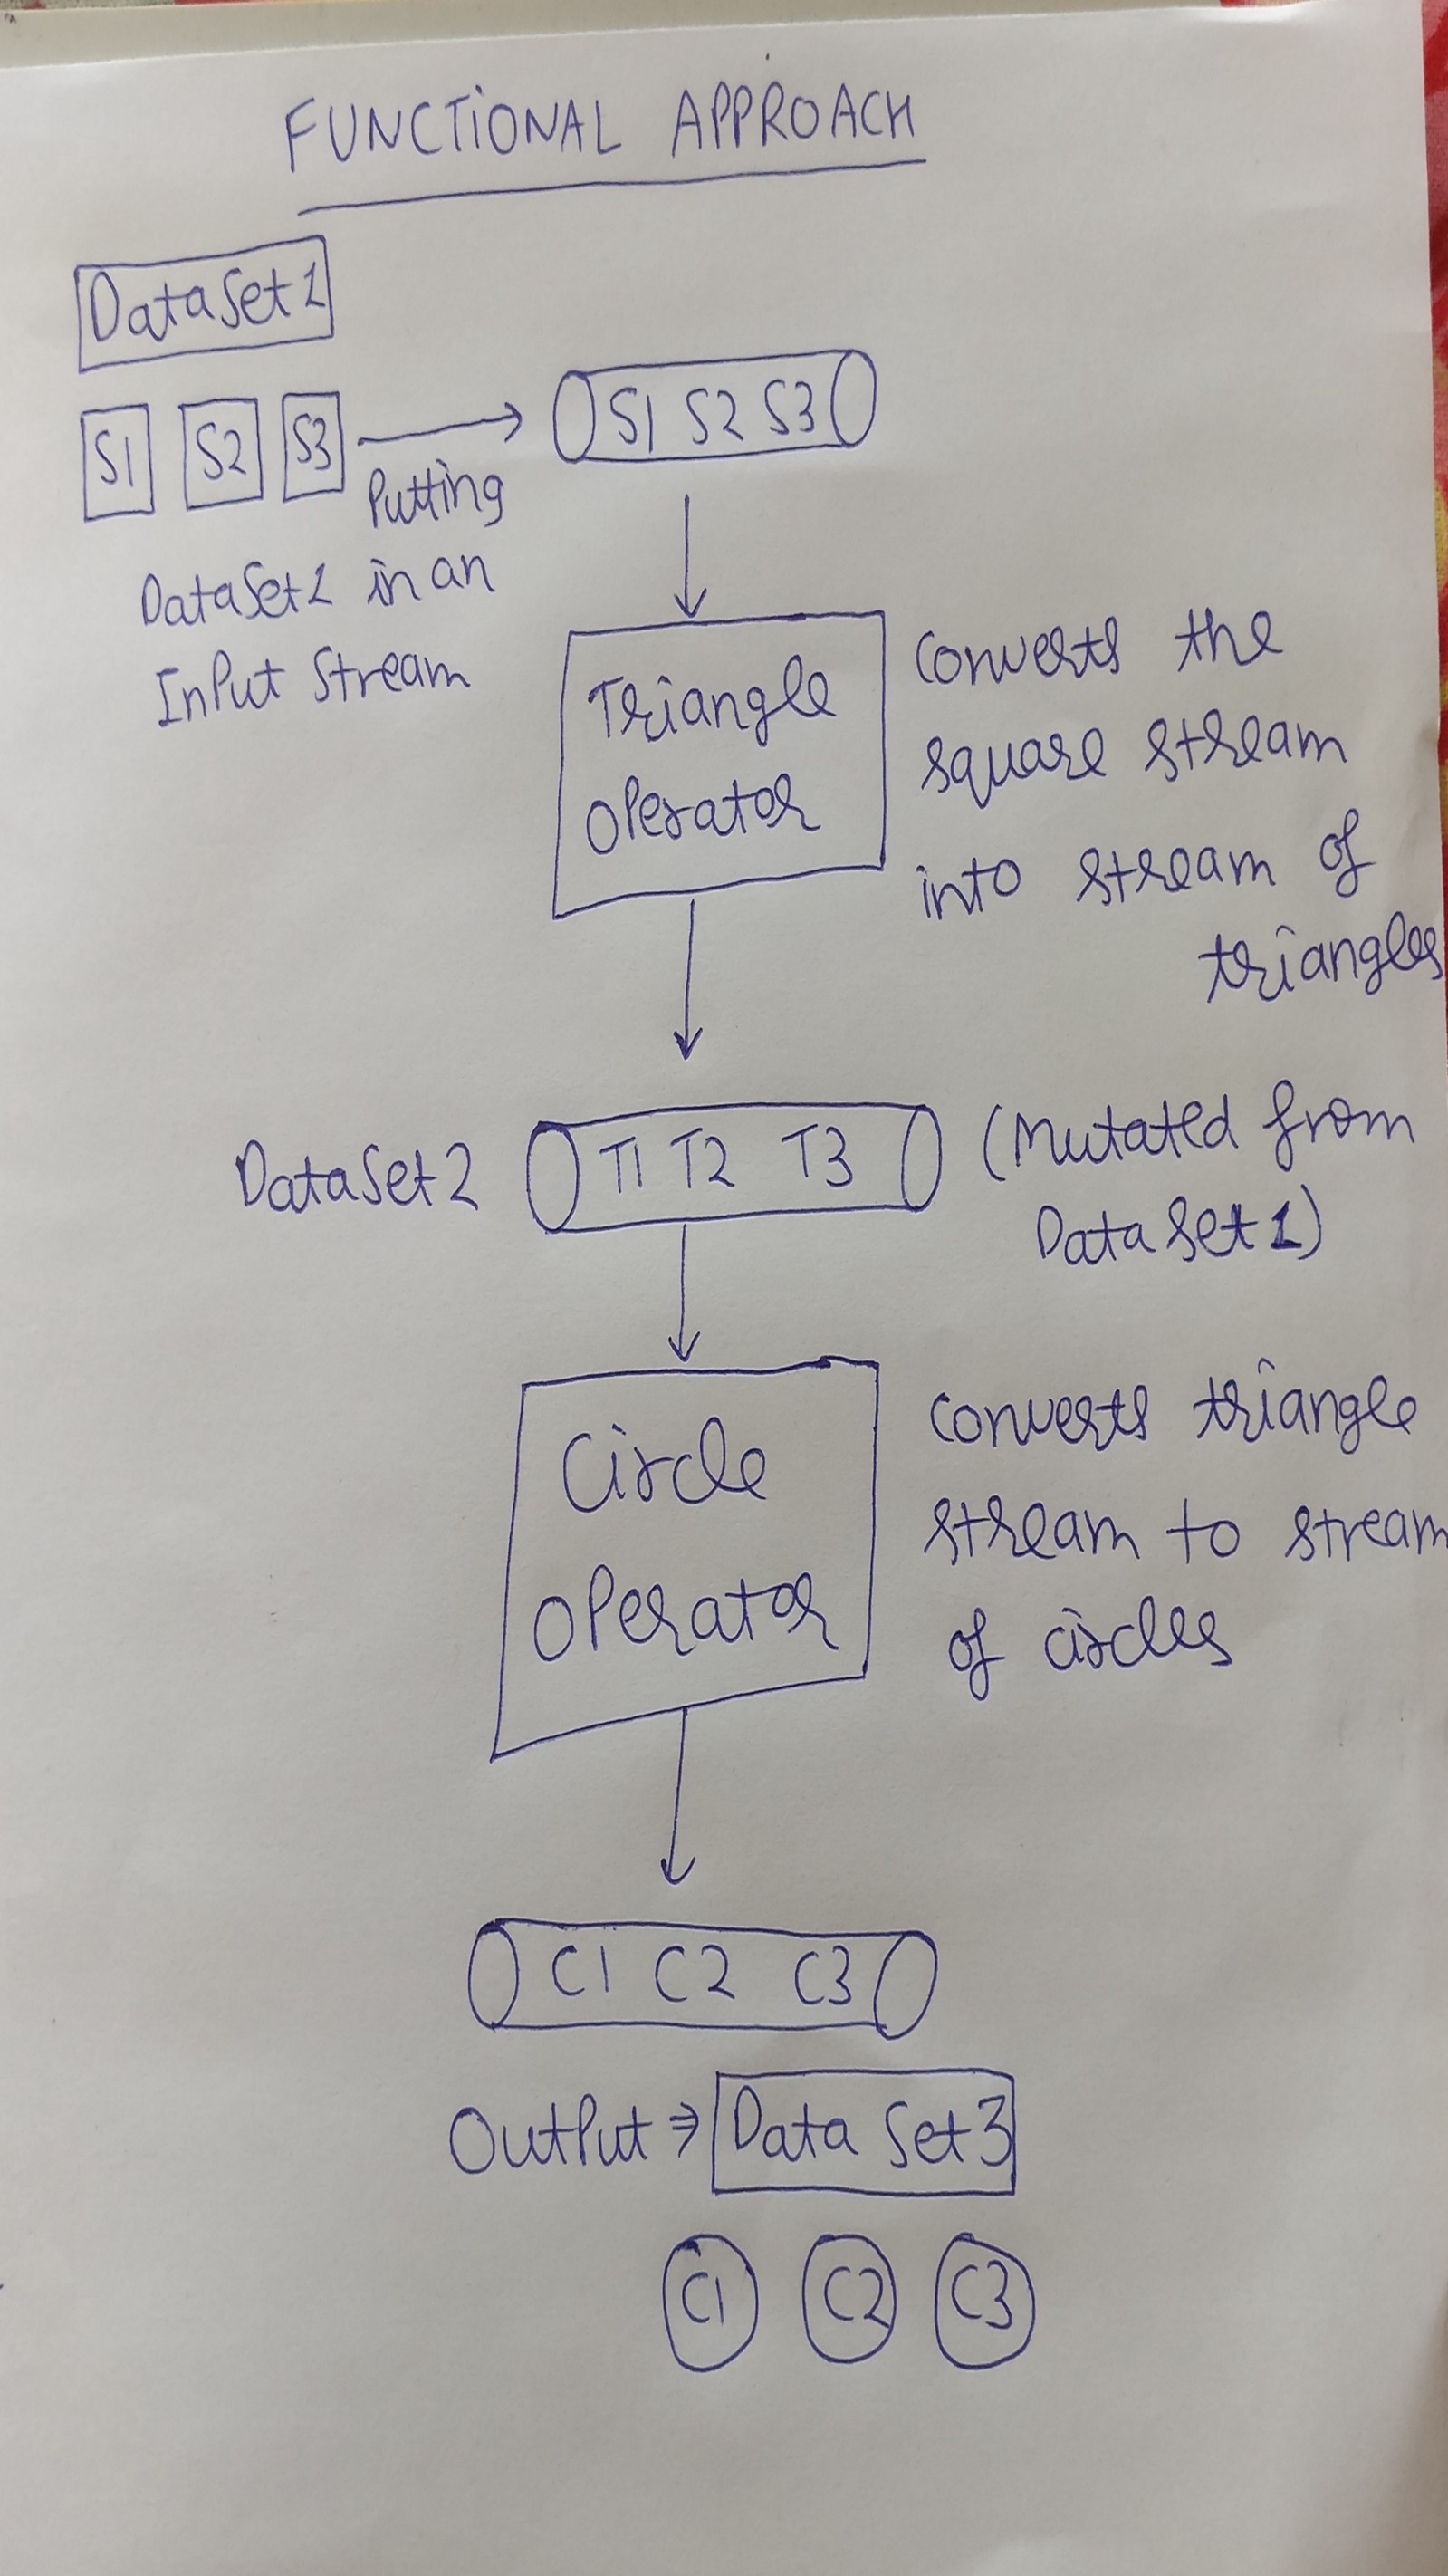 FUNCTIONAL APPROACH
DataSet1
S1 S2 S3
Putting
DataSet1 in an
Input Stream
S1 S2 S3
Triangle
Operator
Converts the
square stream
into stream of
triangles
DataSet2
T1 T2 T3
(Mutated from
DataSet1)
Circle
Operator
Converts triangle
stream to stream
of circles
C1 C2 C3
Output ⇒ Data Set3
C1 C2 C3